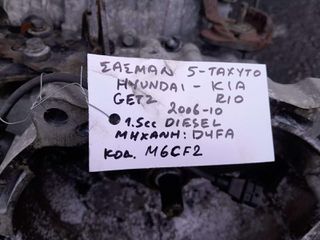 ΣΑΣΜΑΝ 5-ΤΑΧΥΤΟ
HYUNDAI - KIA
GETZ RIO
2006-10
1.5cc DIESEL
ΜΗΧΑΝΗ: D4FA
ΚΩΔ. M6CF2